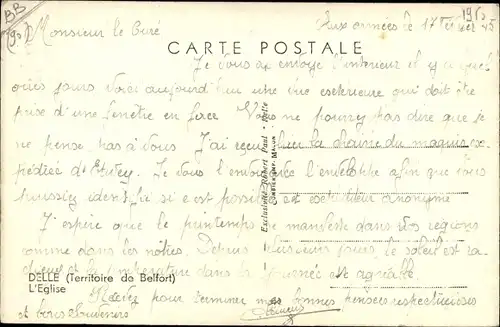 BB
90
1945
Aux armées le 17 février 45
Monsieur le Curé
CARTE POSTALE
Je vous ai envoyé l'intérieur il y a quel
ques jours voici aujourd'hui une vue extérieure qui doit être
prise d'une fenêtre en face Vous ne pourrez pas dire que je
ne pense pas à vous J'ai reçu hier la chaîne du maquis ex
pédiée d' Je vous l'enveloppe afin que vous
puissiez identifié si c'est possible cet expéditeur anonyme
J'espère que le printemps se manifeste dans vos régions
comme dans les nôtres Depuis plusieurs jours le soleil est ra
dieux et la température dans la journée est agréable
DELLE (Territoire de Belfort)
L'Eglise
pour terminer mes bonnes pensées respectueuses
et bons souvenirs
Exclusivité Robert Paul - Delle